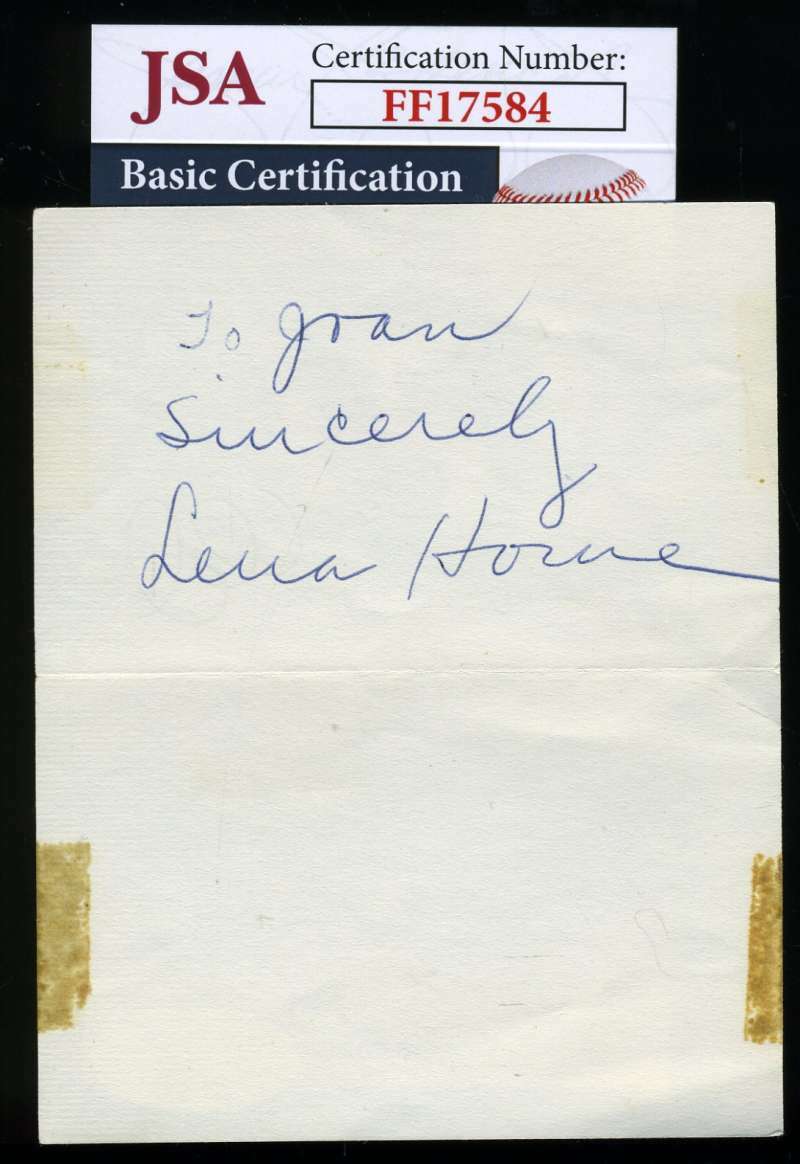 JSA
Certification Number:
FF17584
Basic Certification
To Joan
Sincerely
Lena Horne